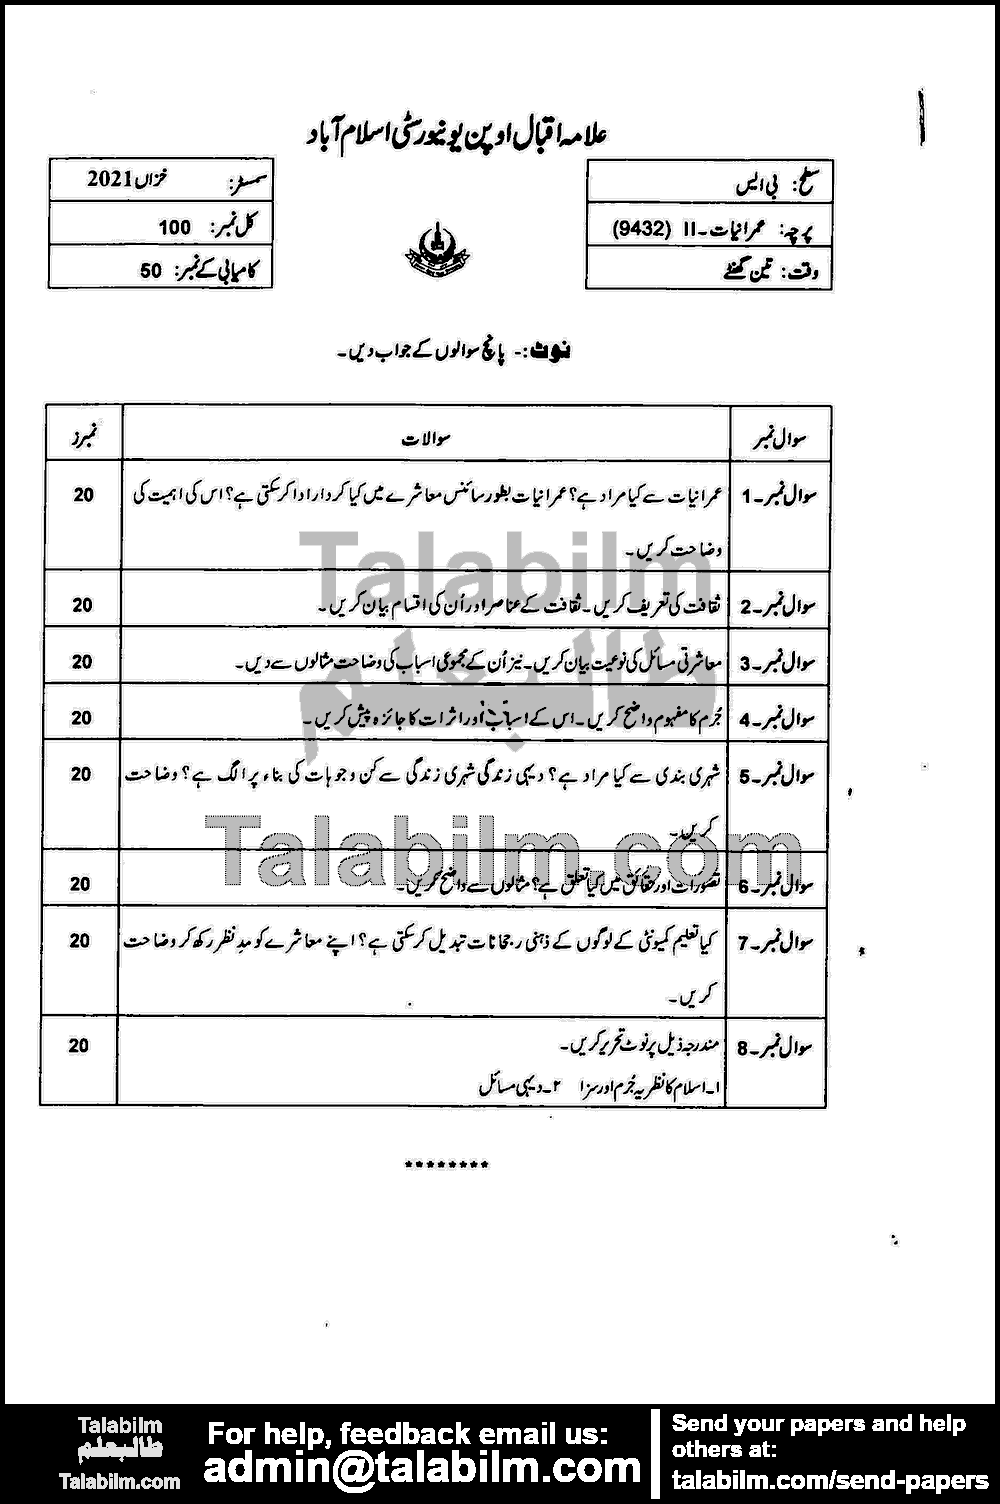 علامہ اقبال اوپن یونیورسٹی اسلام آباد
سطح: بی ایس
پرچہ: عمرانیات۔II (9432)
وقت: تین گھنٹے
سمسٹر: خزاں 2021
کل نمبر: 100
کامیابی کے نمبر: 50
نوٹ:- پانچ سوالوں کے جواب دیں۔
سوال نمبر سوالات نمبرز
سوال نمبر۔1 عمرانیات سے کیا مراد ہے؟ عمرانیات بطور سائنس معاشرے میں کیا کردار ادا کرسکتی ہے؟ اس کی اہمیت کی 20
وضاحت کریں۔
سوال نمبر۔2 ثقافت کی تعریف کریں۔ ثقافت کے عناصر اور اُن کی اقسام بیان کریں۔ 20
سوال نمبر۔3 معاشرتی مسائل کی نوعیت بیان کریں۔ نیز اُن کے مجموعی اسباب کی وضاحت مثالوں سے دیں۔ 20
سوال نمبر۔4 جُرم کا مفہوم واضح کریں۔ اس کے اسباب اور اثرات کا جائزہ پیش کریں۔ 20
سوال نمبر۔5 شہری بندی سے کیا مراد ہے؟ دیہی زندگی شہری زندگی سے کن وجوہات کی بناء پر الگ ہے؟ وضاحت 20
کریں۔
سوال نمبر۔6 تصورات اور حقائق میں کیا تعلق ہے؟ مثالوں سے واضح کریں۔ 20
سوال نمبر۔7 کیا تعلیم کمیونٹی کے لوگوں کے ذہنی رجحانات تبدیل کرسکتی ہے؟ اپنے معاشرے کو مدِ نظر رکھ کر وضاحت 20
کریں۔
سوال نمبر۔8 مندرجہ ذیل پر نوٹ تحریر کریں۔ 20
۱۔ اسلام کا نظریہ جُرم اور سزا ۲۔ دیہی مسائل
********
Talabilm
طالبعلم
Talabilm.com
Talabilm
طالبعلم
Talabilm.com
For help, feedback email us:
admin@talabilm.com
Send your papers and help
others at:
talabilm.com/send-papers